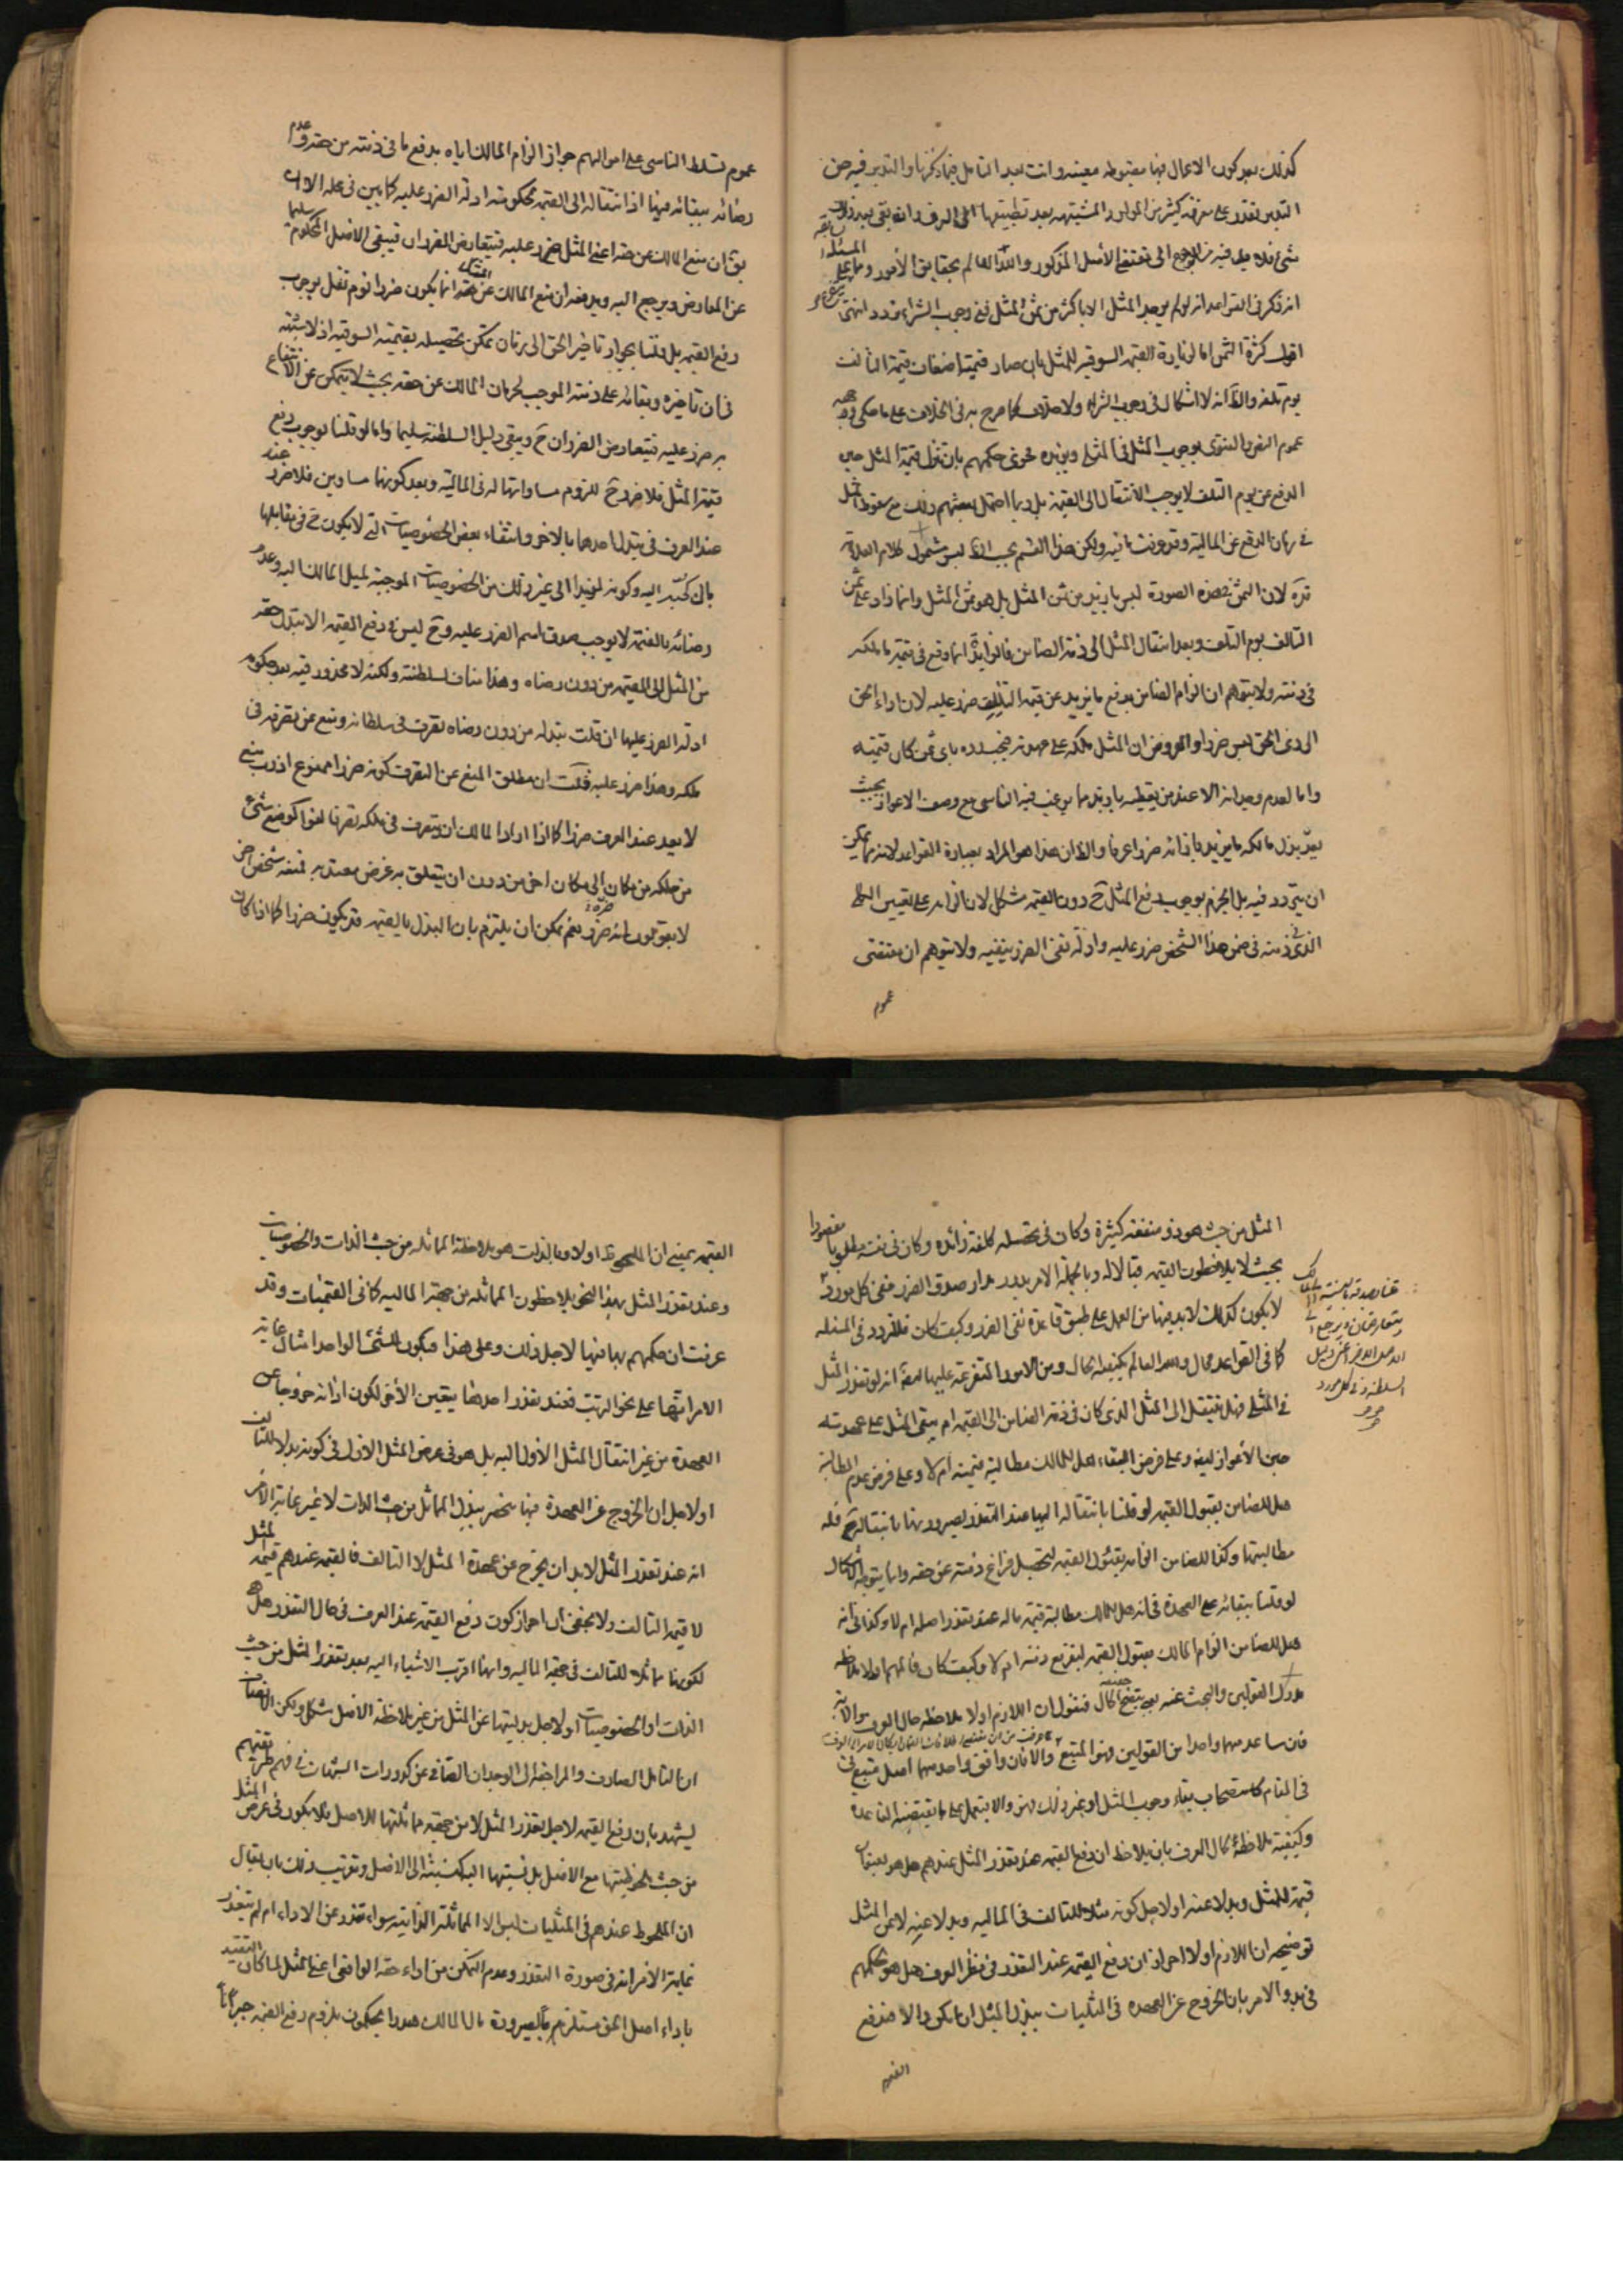 كذلك بعد كون الاعمال فيها مضبوطه معينه وانت بعد التامل فيما ذكرنا والتدبر فيه حق
التدبر تقدر على معرفة كثير من الموارد المشتبهه بعد تطبيقها الى العرف وان بقى بعد ذلك
شئ فلا بد فيه من الرجوع الى مقتضى الاصل المذكور والله العالم بحقايق الامور
انه ذكر فى القواعد انه لو لم يوجد المثل الا باكثر من ثمن المثل ففى وجوب الشراء تردد انتهى
اقول كثرة الثمن اما لزيادة القيمه السوقيه للمثل بان صار قيمته اضعاف قيمة التالف
يوم تلفه والظ انه لا اشكال فى وجوب الشراء ولا خلاف كما صرح به فى الخلاف على ما حكى ووجهه
عموم النص والفتوى بوجوب المثل فى المثلى ويؤيده فحوى حكمهم بان تنزل قيمة المثل حين
الدفع عن يوم التلف لا يوجب الانتقال الى القيمه بل ربما احتمل بعضهم ذلك مع سقوط المثل
فى زمان الدفع عن الماليه وقد عرفت ما فيه ولكن هذا القسم بحسب الظ ليس مشمول كلام العلامة
قده لان الثمن فى هذه الصورة ليس بازيد من ثمن المثل بل هو ثمن المثل وانما زاد على ثمن
التالف يوم التلف وبعد انتقال المثل الى ذمة الضامن فالزيادة انما وقع فى قيمة ما ملكه
فى ذمته ولا يتوهم ان الزام الضامن بدفع ما يزيد عن قيمة التالف ضرر عليه لان اداء الحق
الى ذى الحق ليس ضررا والمفروض ان المثل ملكه على عهدته فيجب رده باى ثمن كان قيمته
واما لعدم وجدانه الا عند من يعطيه بازيد مما يرغب فيه الناس مع وصف الاعواز بحيث
يعد بذل مالكه ما يزيد بازائه ضررا عرفا والظ ان هذا هو المراد بعبارة القواعد لانه يمكن
ان يتردد فيه بل الجزم بوجوب دفع المثل ح دون القيمه مشكل لان الزامه على تعيين الكلى
الذى فى ذمته فى ضمن هذا الشخص ضرر عليه وادلة نفى الضرر ينفيه ولا يتوهم ان مقتضى
عموم
عموم تسلط الناس على اموالهم جواز الزام المالك اياه بدفع ما فى ذمته من حقه وعدم
رضائه ببقائه فيها اذ انتقاله الى القيمه محكومته ادلة الضرر عليه كما بين فى محله الا ان
يق ان منع المالك عن حقه اعنى المثل ضرر عليه فيتعارض الضرران فيبقى الاصل المحكوم سليما
عن المعارض ويرجع اليه ويدفعه ان منع المالك عن حقه المثلى انما يكون ضررا لو لم نقل بوجوب
دفع القيمه بل قلنا بجواز تاخير الحق الى زمان يتمكن تحصيله بقيمته السوقيه اذ لا شبهة
فى ان تاخيره وبقائه على ذمته الموجب لحرمان المالك عن حقه بحيث لا يتمكن عن الانتفاع
به ضرر عليه فيتعارض الضرران ح ويبقى دليل السلطنه سليما واما لو قلنا بوجوب دفع
قيمة المثل فلا ضرر ح للزوم مساواتها له فى الماليه وبعد كونهما مساوين فلا ضرر عند
عند العرف فى تبدل احدهما بالاخر وانتفاء بعض الخصوصيات التى لا يكون ح فى مقابلها
مال اليه وكونه لغيره الى غير ذلك من الخصوصيات الموجبة لميل المالك اليه وعدم
رضائه بالقيمة لا يوجب صدق اسم الضرر عليه وح ليس فى دفع القيمه الا تبدل حقه
من المثل الى القيمه من دون رضاه وهذا مناف لسلطنته ولكنه لا محذور فيه بعد حكومه
ادلة الضرر عليها ان قلت تبدله من دون رضاه تصرف فى سلطانه ومنع عن تصرفه فى
ملكه وهذا ضرر عليه قلت ان مطلق المنع عن التصرف كونه ضررا ممنوع اذ رب منع
لا يعد عند العرف ضررا كما اذا اراد المالك ان يتصرف فى ملكه تصرفا لغوا كوضع شئ
من ملكه من مكان الى مكان اخر من دون ان يتعلق به غرض معتد به فمنعه شخص اخر
لا يقولون انه ضرره نعم يمكن ان يلتزم بان البذل بالقيمه قد يكون ضررا كما اذا كان
المثل من حيث هو ذو منفعة كثيرة وكان فى تحصيله كلفة زائده وكان فى نفسه مطلوبا مقصودا
بحيث لا يلاحظون القيمه قبالا له وبالجملة الامر يدور مدار صدق الضرر ففى كل مورد
لا يكون كذلك لا بد فيها من العمل على طبق قاعدة نفى الضرر وكيف كان فللتردد فى المسئله
كما فى القواعد مجال والله العالم بكيفية الحال ومن الامور المتفرعة عليها ايضا انه لو تعذر المثل
فى المثلى فهل ينتقل الى المثل الذى كان فى ذمة الضامن الى القيمه ام يبقى المثل على عهدته
حين الاعواز ايضا وعلى فرض البقاء هل للمالك مطالبة قيمته ام لا وعلى فرض عدم المطالبة
هل للضامن بقبول القيمه لو قلنا بانتقاله اليها عند التعذر لصيرورتها بانتقاله ح فله
مطالبتها وكذا للضامن الزامه بقبول القيمه لتحصيل فراغ ذمته عن حقه وانما يتوجه الاشكال
لو قلنا ببقائه على العهدة فى انه هل للمالك مطالبة قيمة ماله عند تعذر اصله ام لا وكذا فى انه
هل للضامن الزام المالك بقبول القيمه لتفريغ ذمته ام لا وكيف كان فالمهم اولا ملاحظة
مدرك القولين والبحث عنه حتى يتضح حقيقة الحال فنقول ان اللازم اولا ملاحظة حال العرف
فان ساعد منهما واحدا من القولين فهو المتبع والا فان وافق واحد منهما اصل متبع
فى المقام كاستصحاب بقاء وجوب المثل او غير ذلك فهو والا يعمل على ما يقتضيه القاعدة
وكيفية ملاحظة حال العرف بان يلاحظ ان دفع القيمه عند تعذر المثل عندهم هل هو بعنوان
قيمة للمثل وبدلا عنه او لاجل كونه مثلا للتالف فى الماليه وبدلا عنه لا عن المثل
توضيحه ان اللازم اولا احراز ان دفع القيمه عند التعذر فى نظر العرف هل هو لحكمهم
فى بدو الامر بان الخروج عن العهده فى المثليات ببذل المثل ان امكن والا فدفع
القيمه
القيمه بمعنى ان الملحوظ اولا وبالذات هو ملاحظة المماثله من حيث الذات والخصوصيات
وعند تعذر المثل بهذا النحو يلاحظون المماثله من جهة الماليه كما فى القيميات وقد
عرفت ان حكمهم بها فيها لاجل ذلك وعلى هذا فيكون للشئ الواحد امثال غاية
الامر انها على نحو الترتب فعند تعذر احدها يتعين الاخر لكون ادائه خروجا عن
العهدة من غير انتقال المثل الاول اليه بل هو فى عرض المثل الاول فى كونه بدلا للتالف
او لاجل ان الخروج عن العهدة فيها منحصر ببذل المماثل من حيث الذات لا غير غاية الامر
انه عند تعذر المثل لا بد ان يخرج عن عهدة المثل لا التالف فالقيمه عندهم قيمة للمثل
لا قيمة التالف ولا يخفى ان احراز كون دفع القيمة عند العرف فى حال التعذر هل هو
لكونها مماثلا للتالف فى جهة الماليه وانها اقرب الاشياء اليه بعد تعذر المثل من حيث
الذات او الخصوصيات او لاجل بدليتها عن المثل من غير ملاحظة الاصل مشكل ولكن الانصاف
ان التامل الصادق والمراجعة الى الوجدان الصافى عن كدورات الشبهات فى فهم طريقتهم
يشهد بان دفع القيمه لاجل تعذر المثل لا من جهة مماثلتها للاصل فلا يكون فى عرض المثل
من حيث لحاظها مع الاصل بل نسبتها اليه كنسبته الى الاصل وتقريب ذلك بان يقال
ان الملحوظ عندهم فى المثليات ليس الا المماثلة الذاتيه سواء تعذر عن الاداء ام لم يتعذر
غاية الامر انه فى صورة التعذر وعدم التمكن من اداء حقه الواقعى اعنى المثل لما كان التقييد
باداء اصل الحق مستلزم لصيرورة مال المالك هدرا يحكمون بلزوم دفع القيمه جبرانا